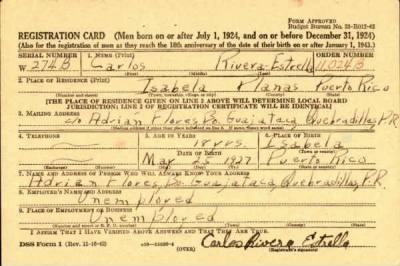 FORM APPROVED
Budget Bureau No. 33-R012-42
REGISTRATION CARD—(Men born on or after July 1, 1924, and on or before December 31, 1924)
(Also for the registration of men as they reach the 18th anniversary of the date of their birth on or after January 1, 1943.)
SERIAL NUMBER 1. NAME (Print) ORDER NUMBER
W 274B Carlos Rivera-Estrella 11,024B
2. PLACE OF RESIDENCE (Print)
Isabela Planas Puerto Rico
(Number and street) (Town, township, village, or city) (County) (State)
[THE PLACE OF RESIDENCE GIVEN ON LINE 2 ABOVE WILL DETERMINE LOCAL BOARD
JURISDICTION; LINE 2 OF REGISTRATION CERTIFICATE WILL BE IDENTICAL]
3. MAILING ADDRESS
c/o Adrian Flores, Po. Guajataca, Quebradillas, P.R.
[Mailing address if other than place indicated on line 2. If same, insert word same]
4. TELEPHONE 5. AGE IN YEARS 6. PLACE OF BIRTH
18 yrs. Isabela
DATE OF BIRTH (Town or county)
May 25 1927 Puerto Rico
(Exchange) (Number) (Mo.) (Day) (Yr.) (State or country)
7. NAME AND ADDRESS OF PERSON WHO WILL ALWAYS KNOW YOUR ADDRESS
Adrian Flores, Po. Guajataca, Quebradillas, P.R.
8. EMPLOYER'S NAME AND ADDRESS
Unemployed
9. PLACE OF EMPLOYMENT OR BUSINESS
Unemployed
(Number and street or R. F. D. number) (Town) (County) (State)
I AFFIRM THAT I HAVE VERIFIED ABOVE ANSWERS AND THAT THEY ARE TRUE.
DSS Form 1 (Rev. 11-16-42) (OVER) Carlos Rivera Estrella
(Registrant's signature)